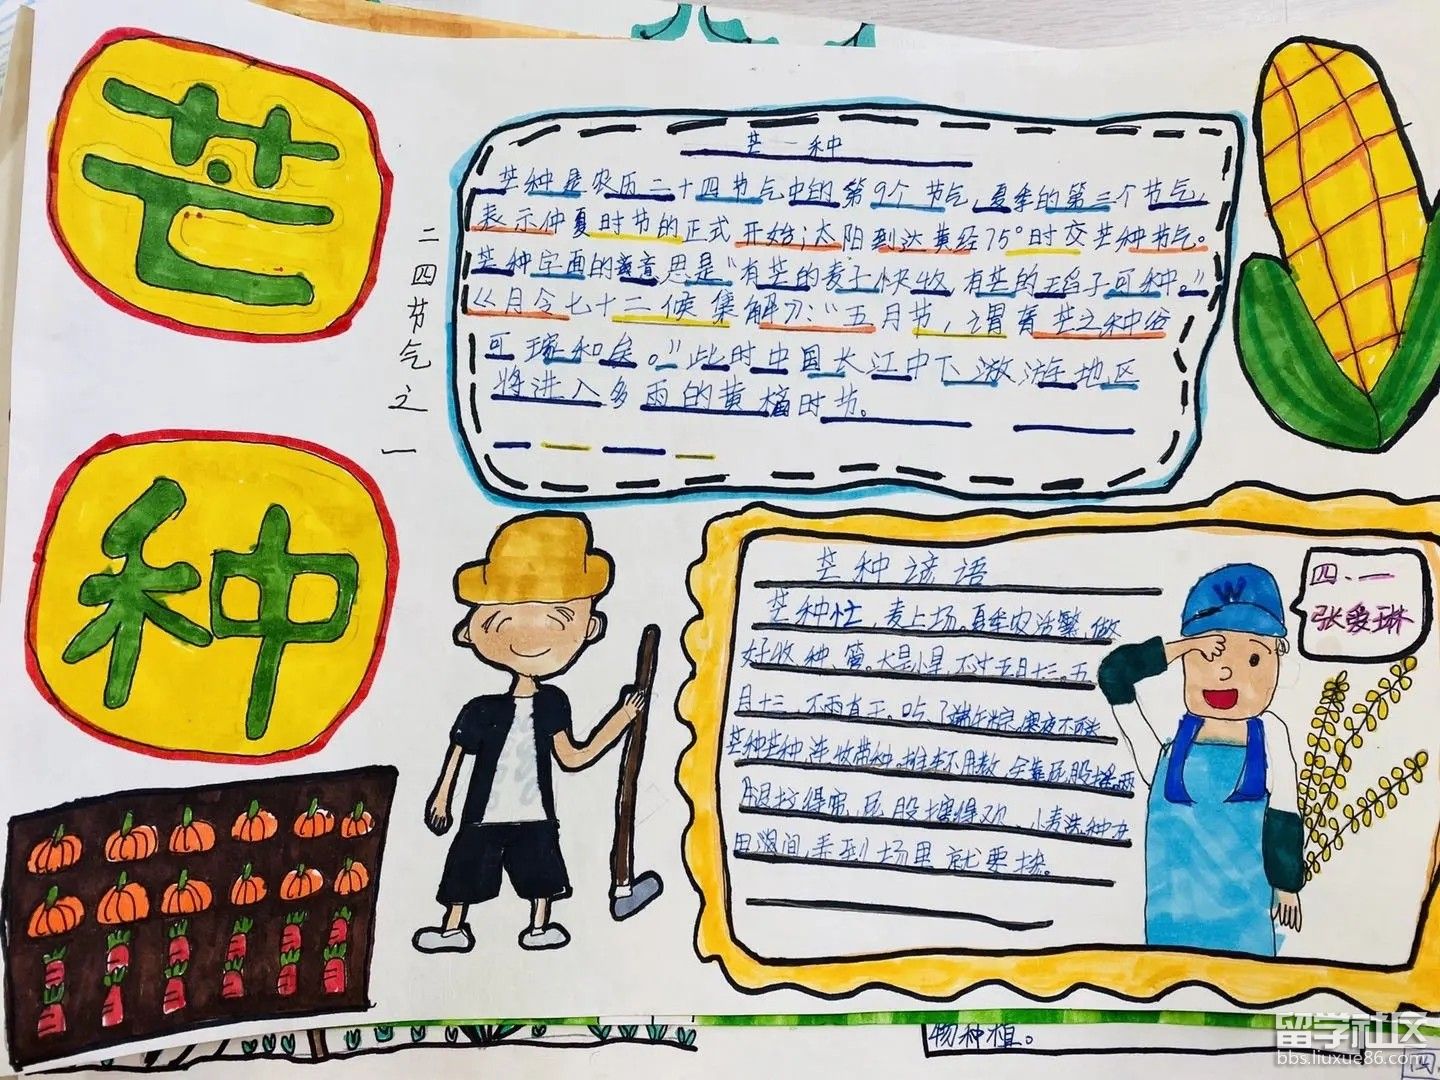 芒
种
二四节气之一
芒一种
芒种是农历二十四节气中的第9个节气,夏季的第三个节气,
表示仲夏时节的正式开始;太阳到达黄经75°时交芒种节气。
芒种字面的意思是"有芒的麦子快收,有芒的稻子可种。"
《月令七十二候集解》:"五月节,谓有芒之种谷
可稼和矣。"此时中国长江中下游地区
将进入多雨的黄梅时节。
芒种谚语
芒种忙,麦上场。夏季农活繁,做
好收、种、管。大旱小旱,不过五月十三。五
月十三,不雨直干。吃了端午粽,寒衣不可送
芒种芒种,连收带种。
得欢,小麦
四、一
张爱琳
物种植。
四
W
留学社区
bbs.liuxue86.com